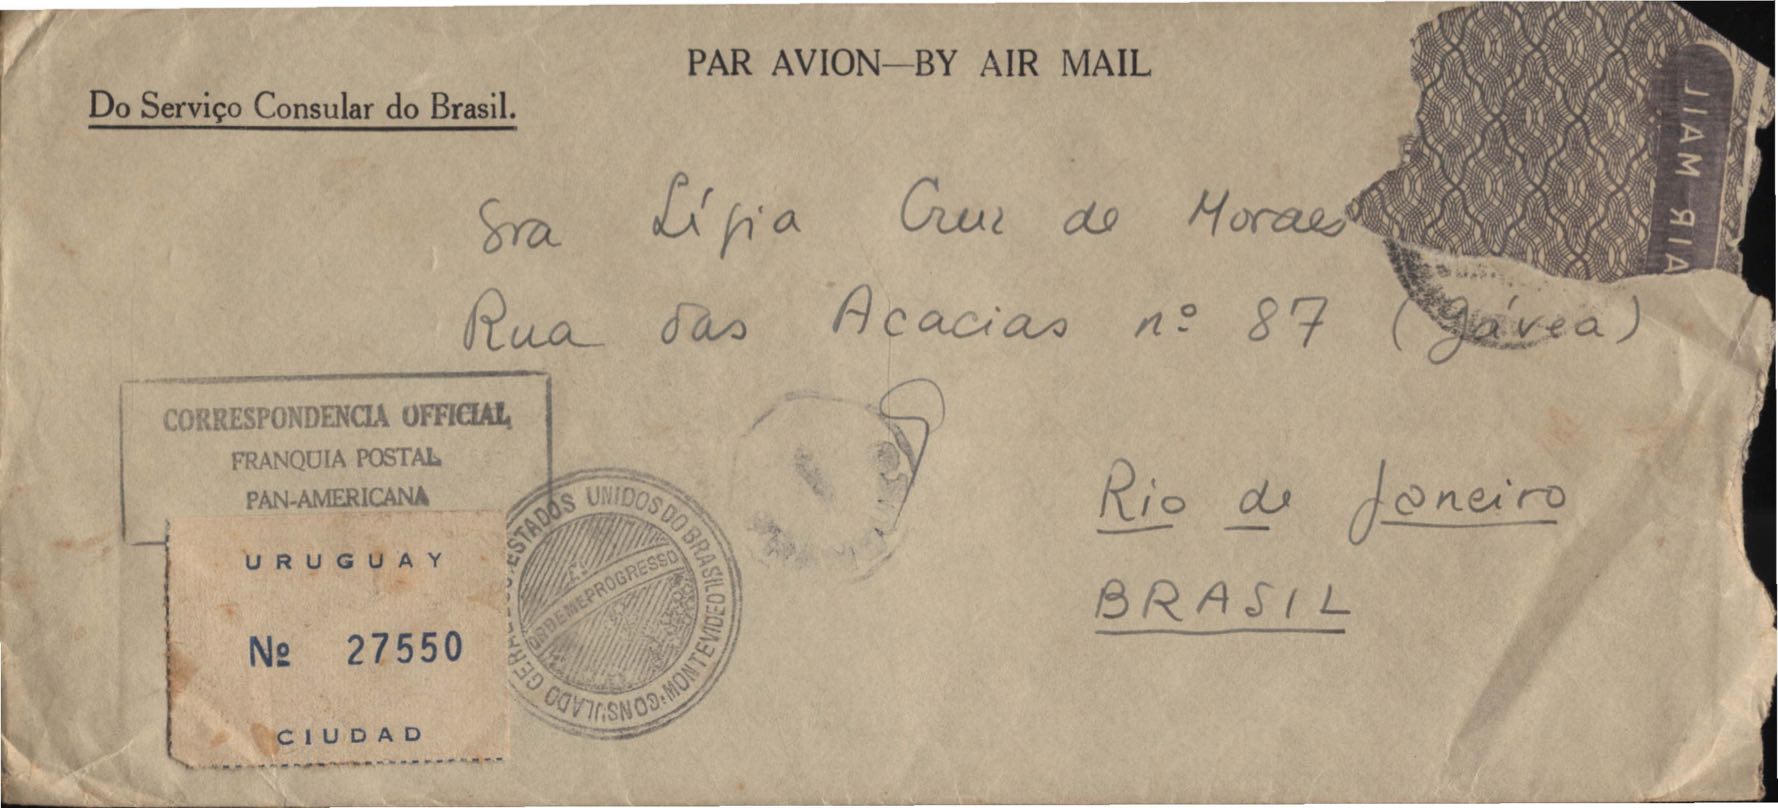 PAR AVION—BY AIR MAIL
Do Serviço Consular do Brasil.
AIR MAIL
Sra Lígia Cruz de Moraes
Rua das Acacias nº 87 (Gávea)
CORRESPONDENCIA OFFICIAL
FRANQUIA POSTAL
PAN-AMERICANA
Rio de Janeiro
BRASIL
URUGUAY
Nº 27550
CIUDAD
CONSULADO GERAL ESTADOS UNIDOS DO BRASIL
MONTEVIDEO
ORDEM E PROGRESSO